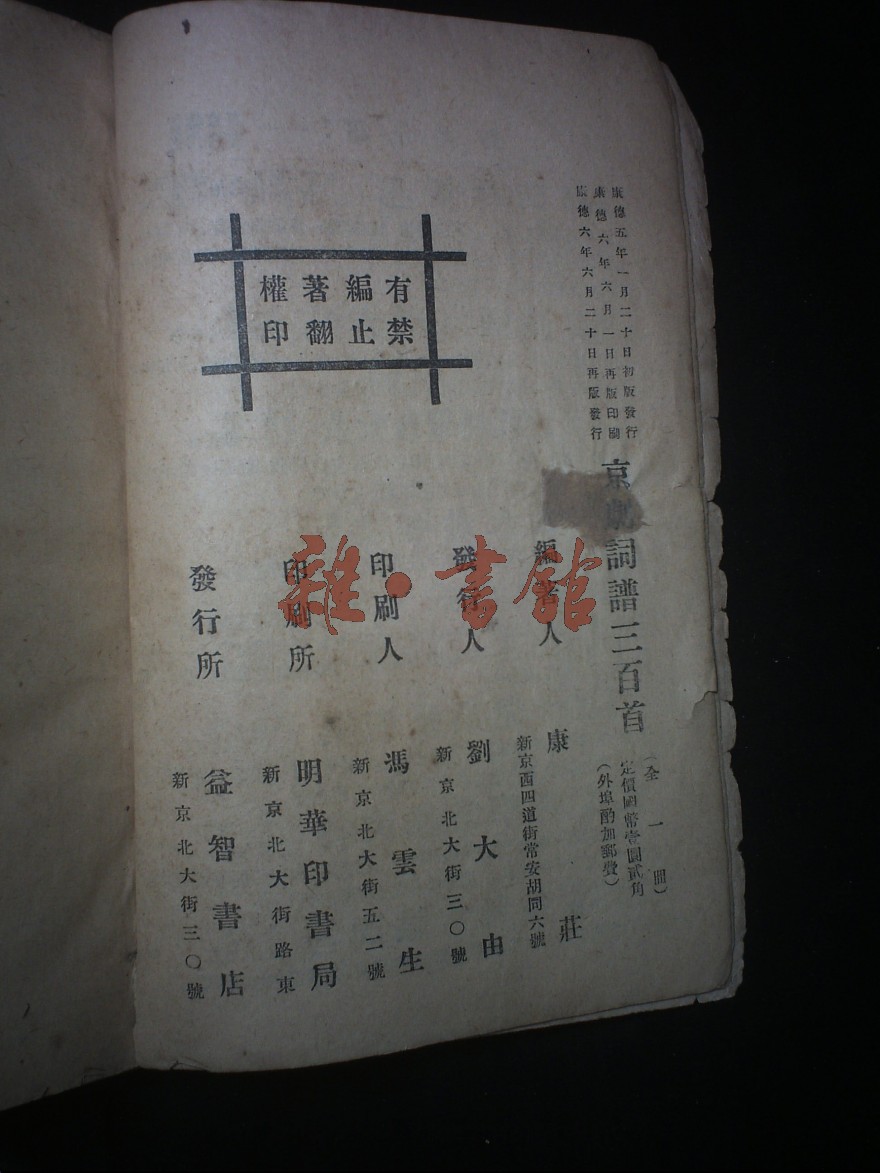 康德五年一月二十日初版發行
康德六年六月一日再版印刷
康德六年六月二十日再版發行
京戲詞譜三百首
(全一冊)
定價國幣壹圓貳角
(外埠酌加郵費)
有編著權
禁止翻印
編著人 康莊
新京西四道街常安胡同六號
發行人 劉大由
新京北大街三〇號
印刷人 馮雲生
新京北大街五二號
印刷所 明華印書局
新京北大街路東
發行所 益智書店
新京北大街三〇號
雜·書館